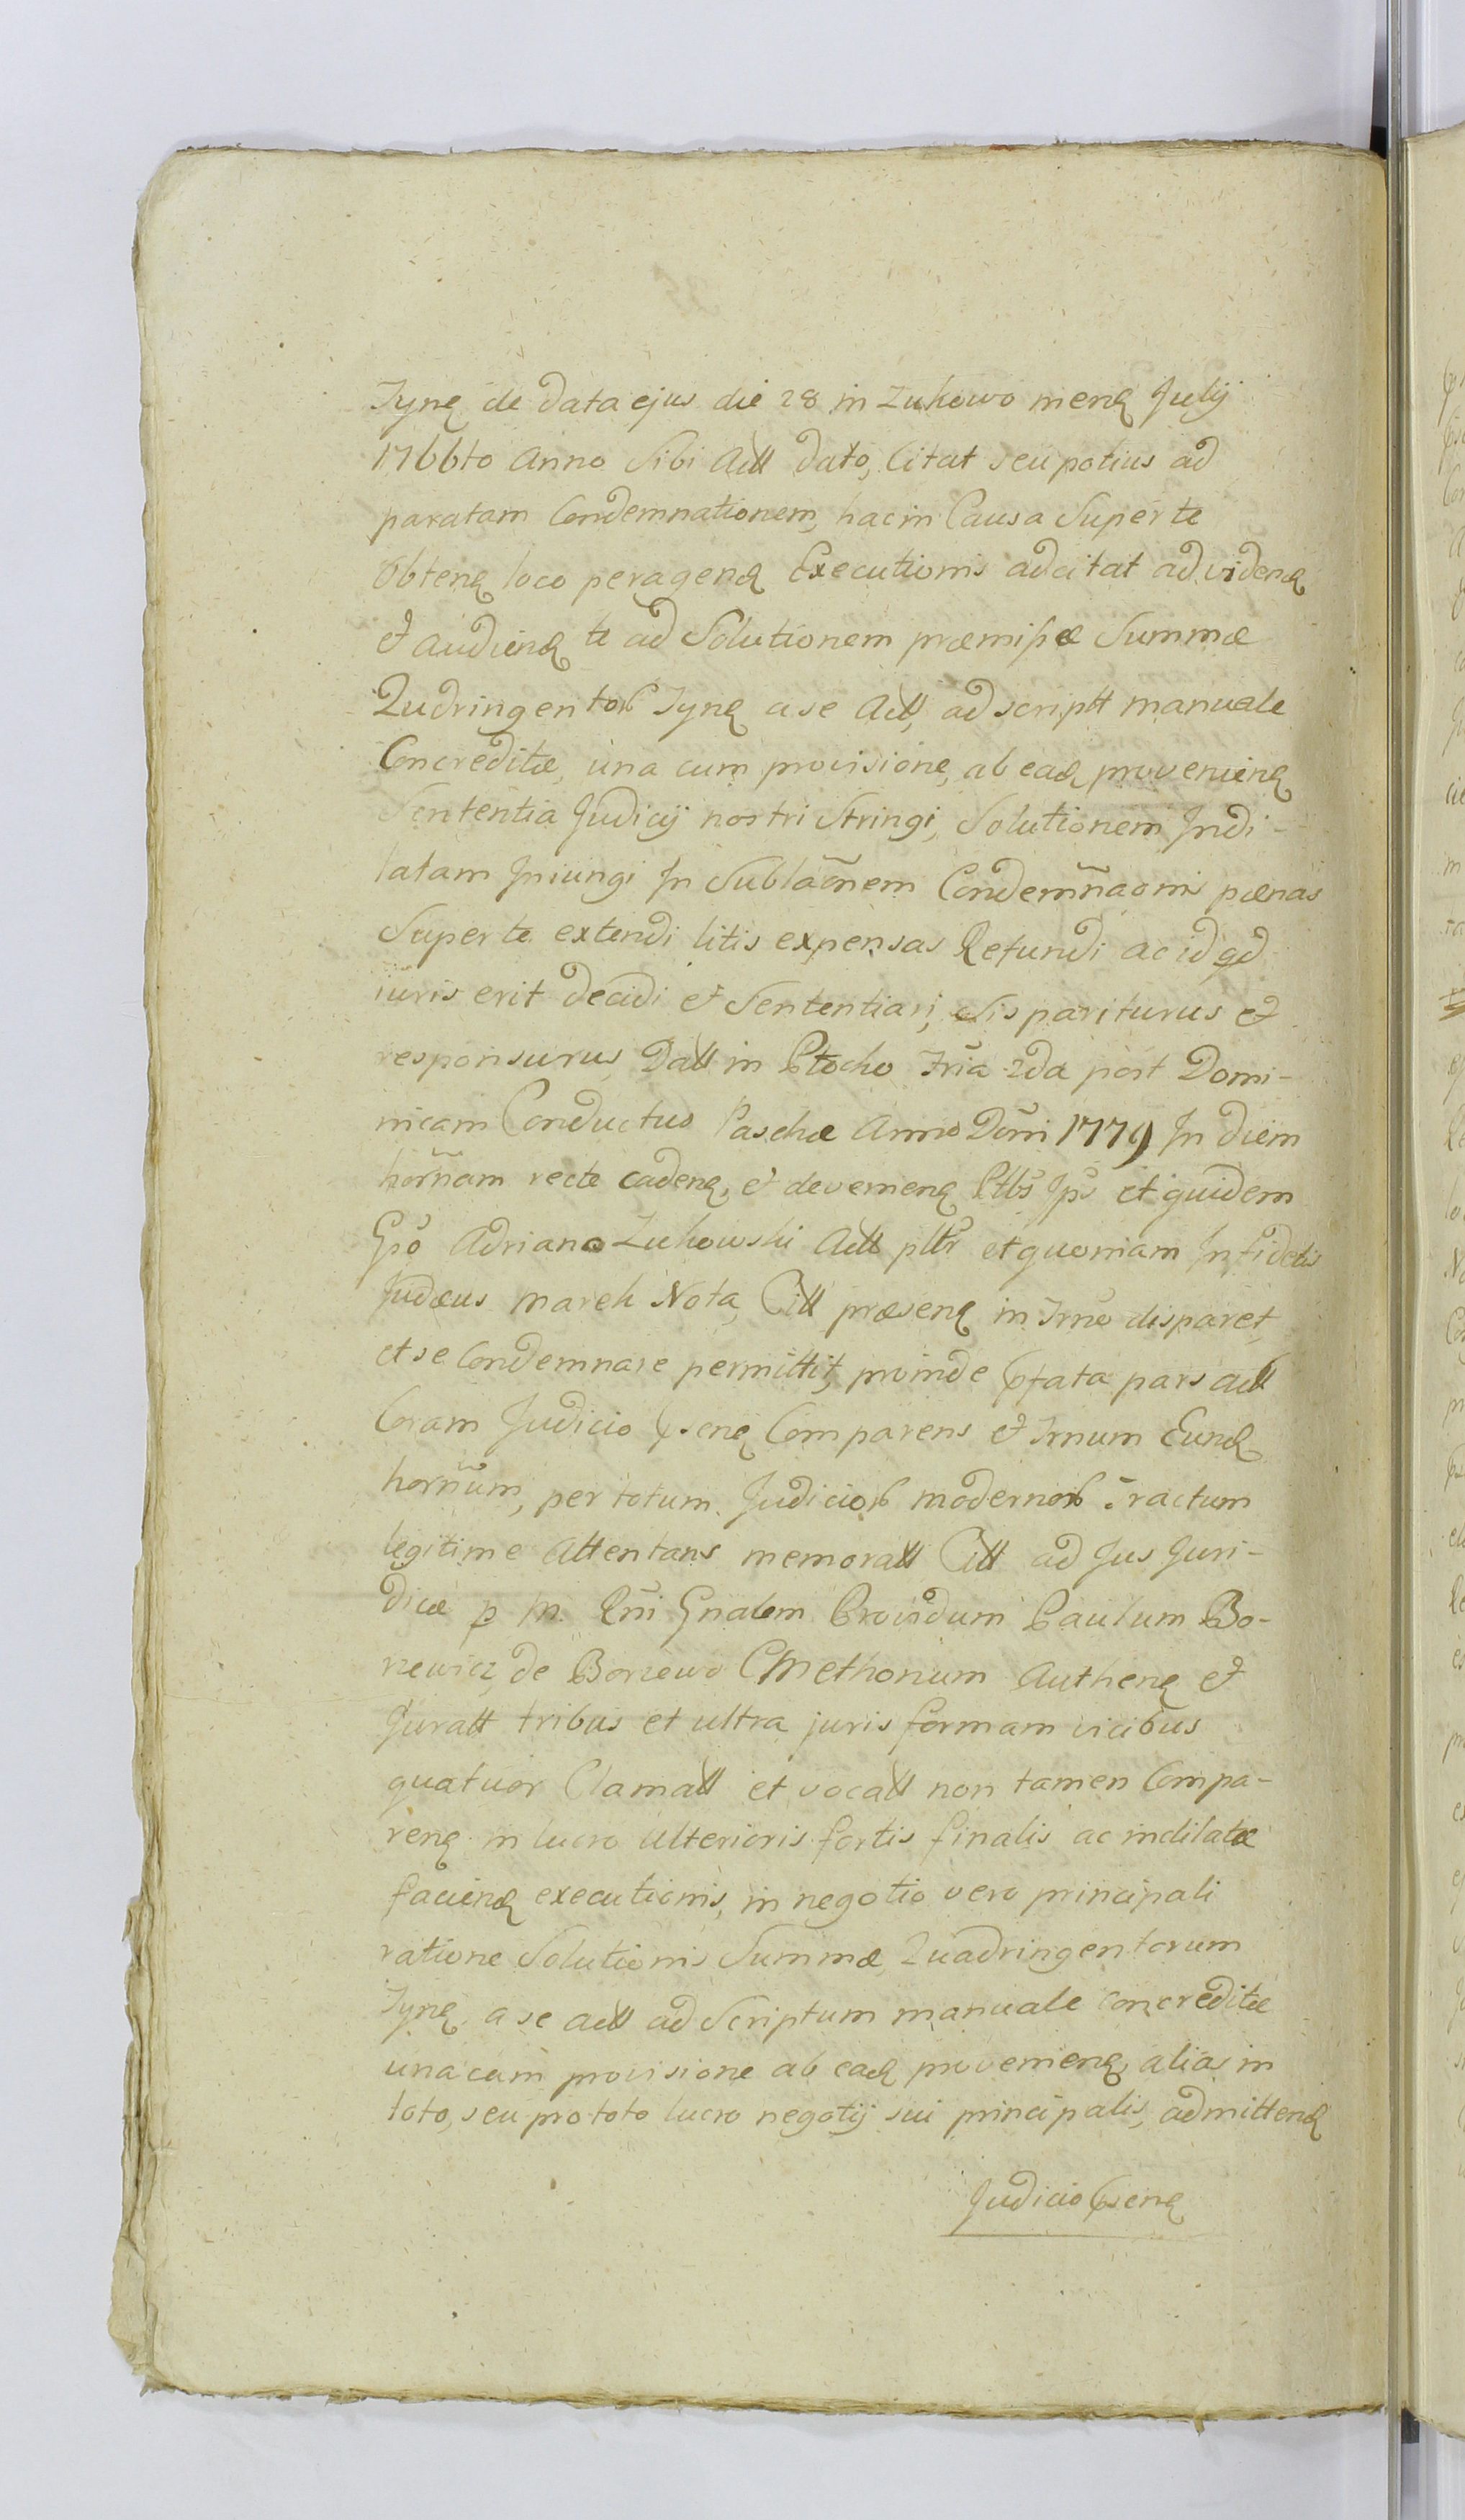 Tynꝫ de data ejus die 28 in Zukowo menꝫ Julij
1766to Anno Sibi Actt dato, Citat seu potius ad
paratam Condemnationem, hac in Causa Super te
Obtenꝫ loco peragenꝫ Executionis adcitat ad videnꝫ
et audienꝫ te ad Solutionem præmissæ Summæ
Qudringentor Tynꝫ a se Actt, ad scriptt manuale
Concreditæ, una cum provisione, ab eadꝫ provenienꝫ
Sententia Judicij nostri Stringi, Solutionem Indi-
latam Iniungi In Sublaõnem Condemñaonis pœnas
Super te extendi litis expensas Refundi ac id qd
iuris erit decidi et Sententiari, sis pariturus et
responsurus Datt in Plocko Fria 2da post Domi-
nicam Conductus Paschæ Anno Dõni 1779 In diem
horñam recte cadenꝫ, et devenienꝫ Ptlbs Ips et quidem
Gsõ Adriano Zukowski Actt pltr et quoniam Infidelis
Judæus Marek Nota, Citt præsenꝫ in Trno disparet,
et se Condemnare permittit, proinde Pfata pars actt
Coram Judicio Psenꝫ Comparens et Trnum Eundꝫ
horñum, per totum Judicior modernor Tractum
legitime Attentans memoratt Citt ad Jus Juri-
dicæ p M. Rñi Gnalem Providum Paulum Bo-
rzewicz de Borzewo CMethonium Authenꝫ et
Juratt tribus et ultra juris formam vicibus
quatuor Clamatt et vocatt non tamen Compa-
renꝫ in lucro Ulterioris fortis finalis ac indilatæ
faciendꝫ executionis, in negotio vero principali
ratione Solutionis Summæ Quadringentorum
Tynꝫ a se actt ad Scriptum manuale concreditæ
una cum provisione ab eadꝫ provenienꝫ, alias in
toto, seu pro toto lucro negotij sui principalis, admittendꝫ
Judicio Psenꝫ